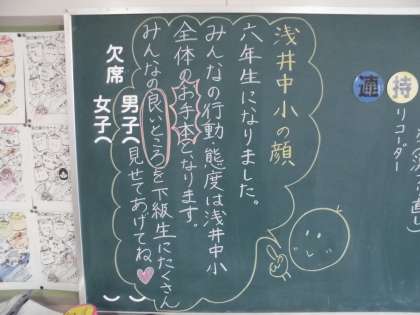 浅井中小の顔
六年生になりました。
みんなの行動・態度は浅井中小
全体のお手本となります。
みんなの良いところを下級生にたくさん
見せてあげてね
欠席
男子( )
女子( )
持
連
リコーダー